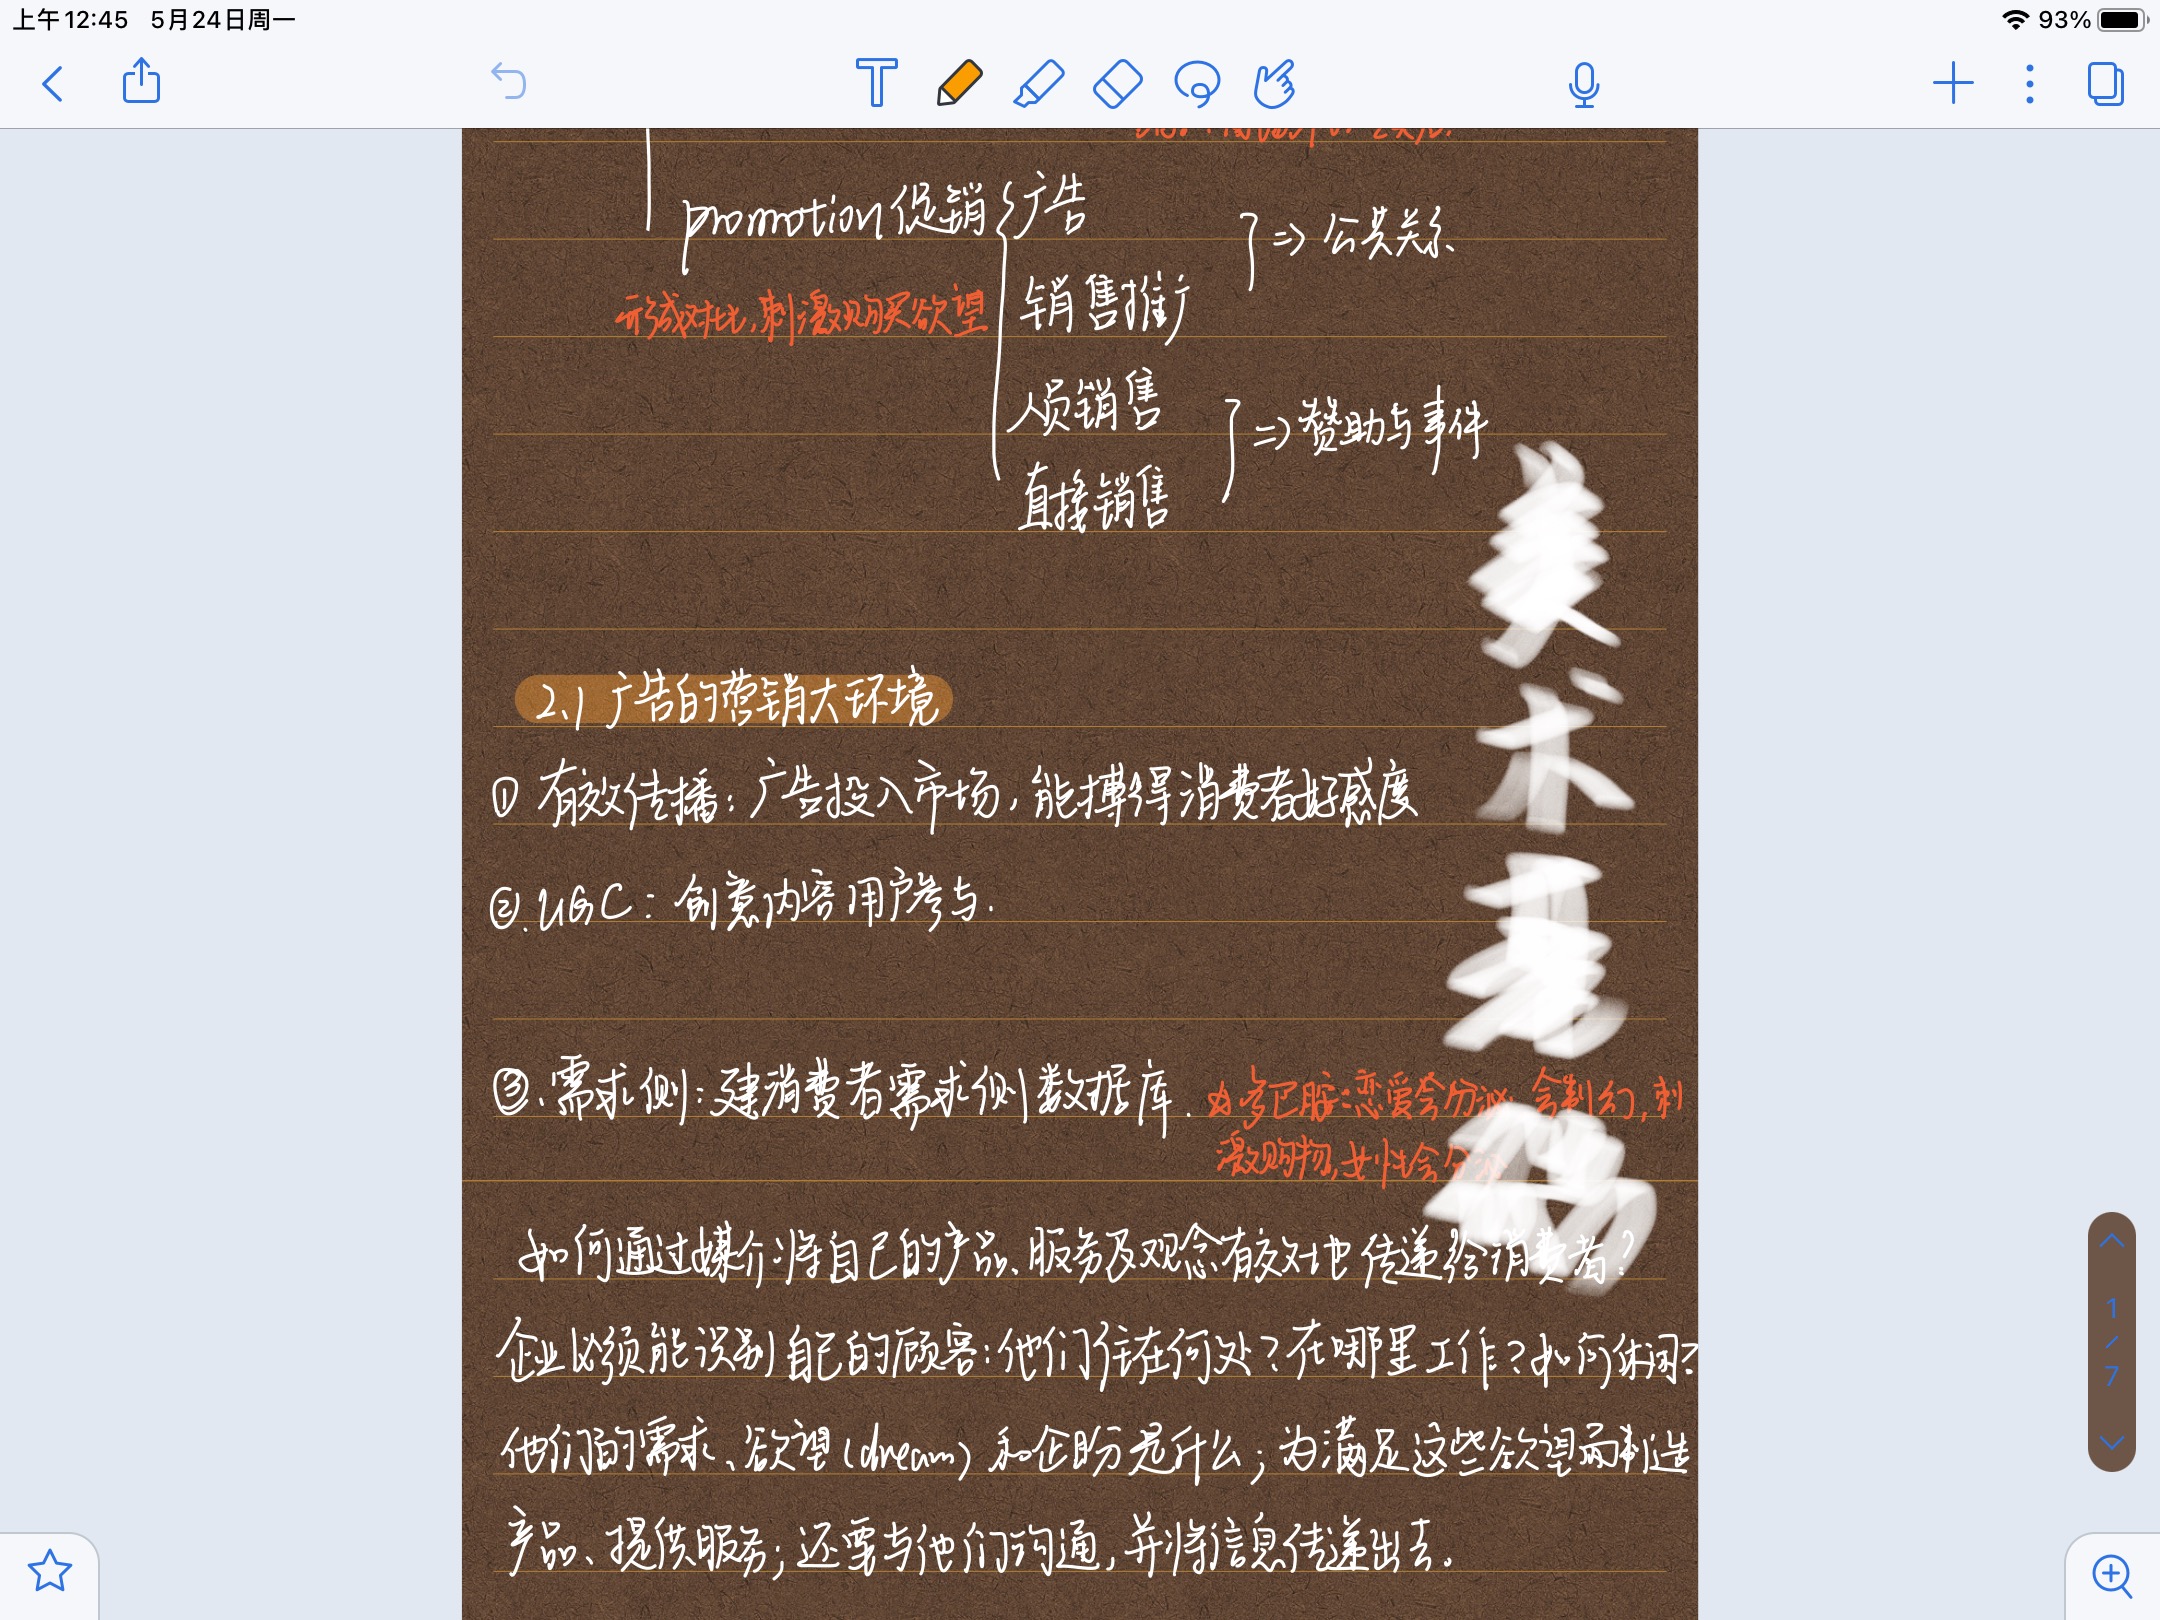 上午12:45 5月24日周一
93%
promotion 促销
广告
=> 公共关系
形成对比,刺激购买欲望
销售推广
人员销售
=> 赞助与事件
直接销售
2.1 广告的营销大环境
① 有效传播:广告投入市场,能搏得消费者好感度
②.UGC:创意内容用户参与.
③.需求侧:建消费者需求侧数据库.
多巴胺:恋爱会分泌,会制幻,刺
激购物,女性会分泌
如何通过媒介将自己的产品、服务及观念有效地传递给消费者?
企业必须能识别自己的顾客:他们住在何处?在哪里工作?如何休闲?
他们的需求、欲望(dream)和企盼是什么;为满足这些欲望而制造
产品、提供服务;还要与他们沟通,并将信息传递出去.
美术
1
/
7